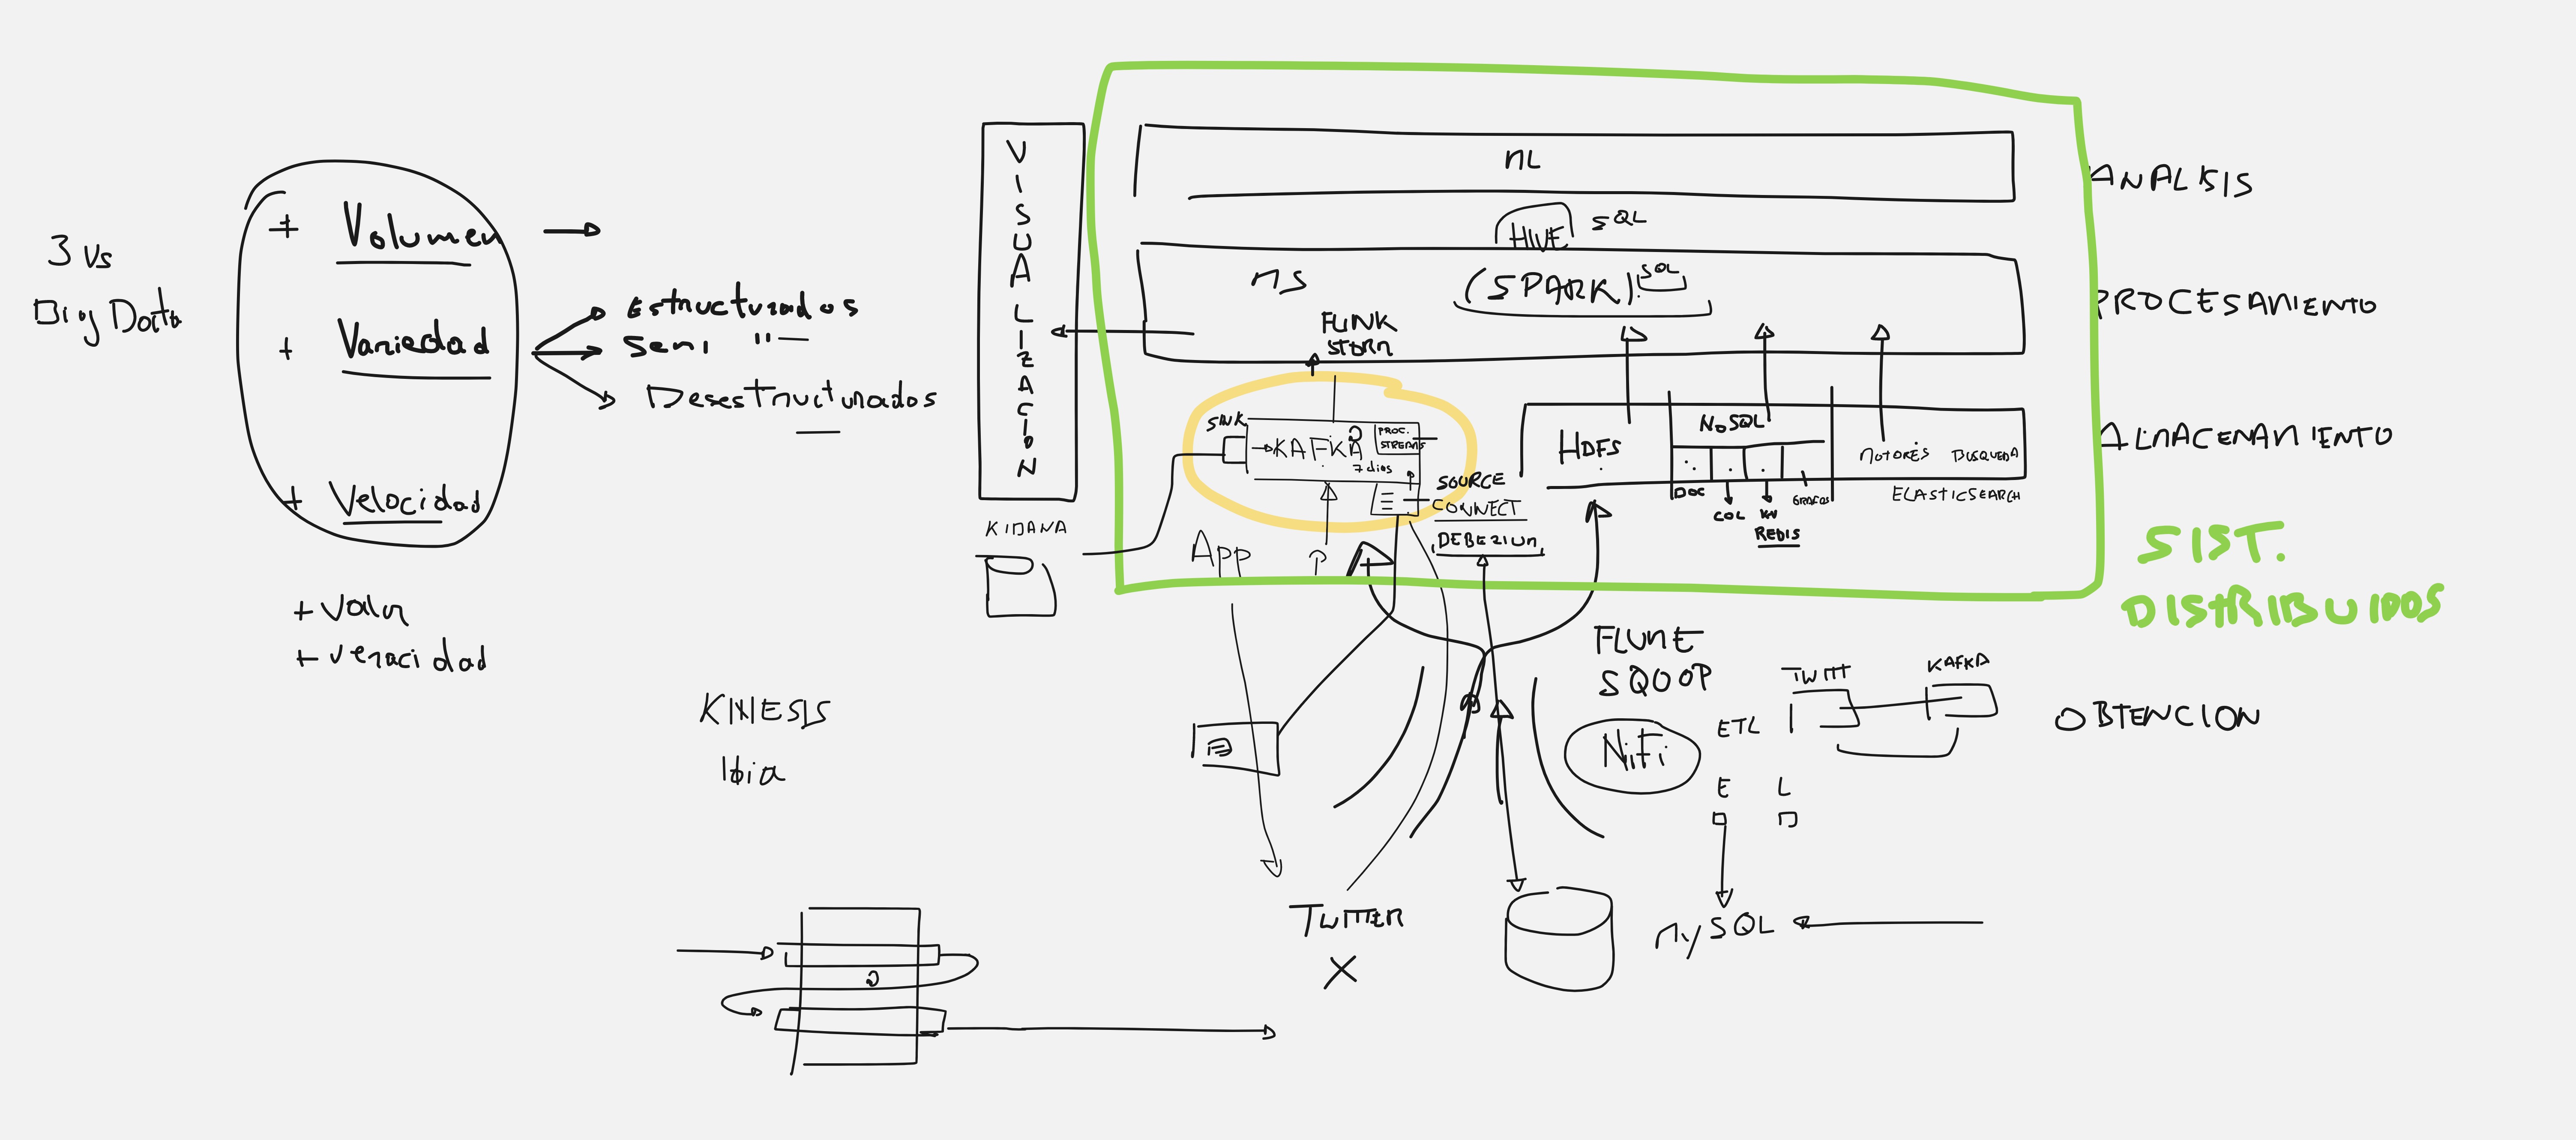 3 Vs
Big Data
+ Volumen
+ Variedad
+ Velocidad
Estructurados
Semi "
Desestructurados
+ Valor
+ Veracidad
KINESIS
1 dia
VISUALIZACION
KIBANA
ML
HIVE SQL
(SPARK) SQL
FLINK
STORM
SINK
KAFKA
7 dias
PROC.
STREAMS
SOURCE
CONNECT
DEBEZIUM
App
HDFS
NoSQL
DOC
COL
KV
REDIS
GRAFOS
MOTORES BUSQUEDA
ELASTICSEARCH
ANALISIS
PROCESAMIENTO
ALMACENAMIENTO
SIST.
DISTRIBUIDOS
FLUME
SQOOP
NiFi
ETL
TWITT
KAFKA
E L
OBTENCION
TWITTER
X
MySQL